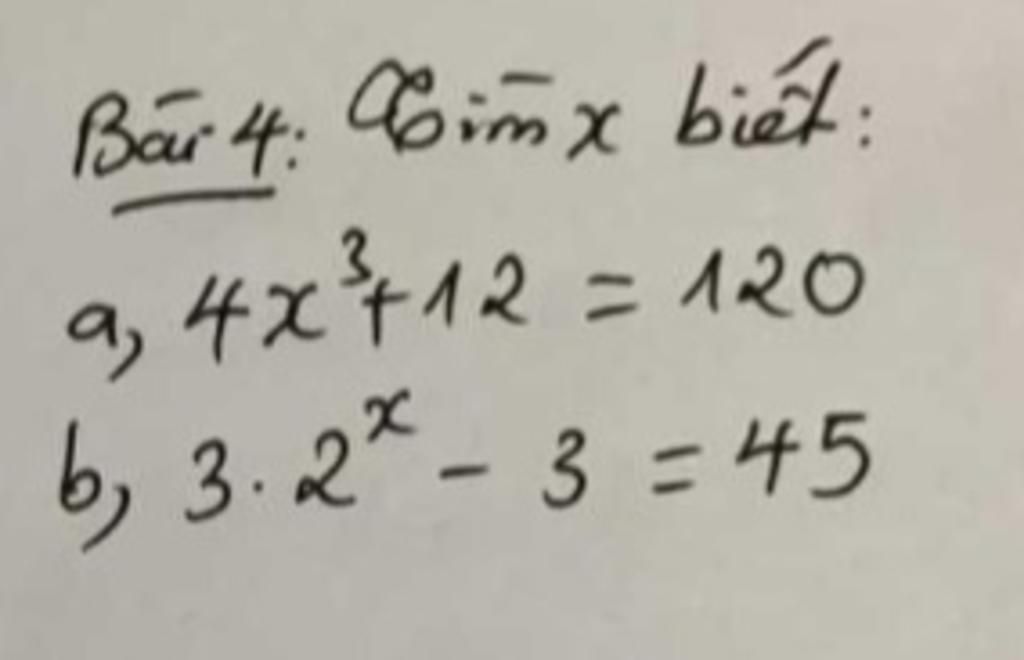 Bài 4: Tìm x biết:
a, 4x³+12 = 120
b, 3. 2ˣ - 3 = 45